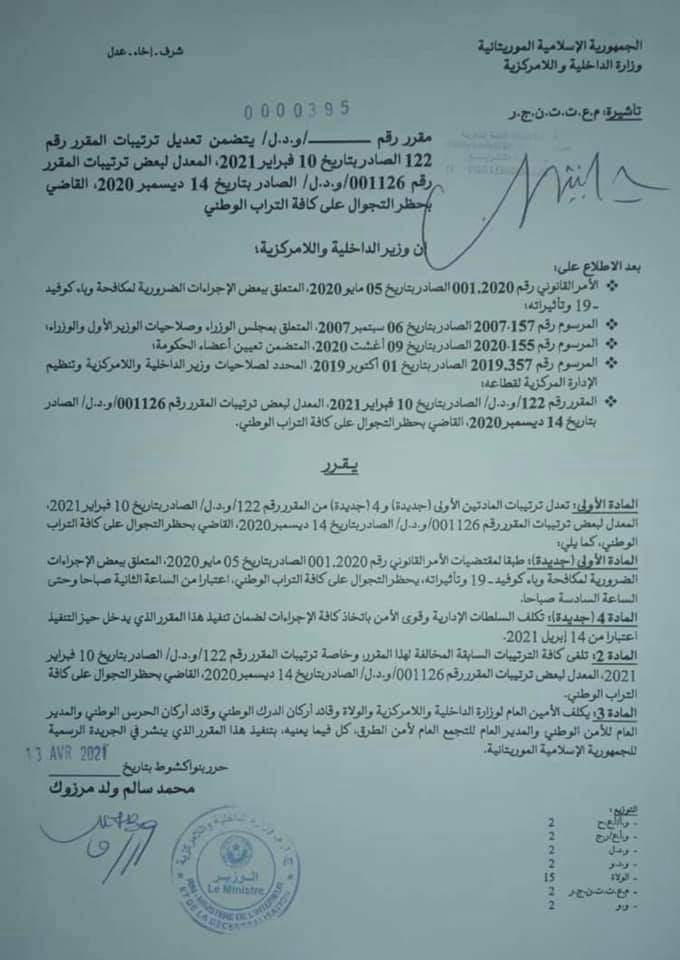 الجمهورية الإسلامية الموريتانية
شرف ـ إخاء ـ عدل
وزارة الداخلية و اللامركزية
تأشيرة: م.ع.ت.ت.ن.ج.ر
0000395
مقرر رقم ــــــــــ /و.د.ل/ يتضمن تعديل ترتيبات المقرر رقم
122 الصادر بتاريخ 10 فبراير 2021، المعدل لبعض ترتيبات المقرر
رقم 001126/و.د.ل/ الصادر بتاريخ 14 ديسمبر 2020، القاضي
بحظر التجوال على كافة التراب الوطني
إن وزير الداخلية واللامركزية؛
بعد الاطلاع على:
❖ الأمر القانوني رقم 001.2020 الصادر بتاريخ 05 مايو 2020، المتعلق ببعض الإجراءات الضرورية لمكافحة وباء كوفيد
ـ 19 وتأثيراته؛
❖ المرسوم رقم 2007.157 الصادر بتاريخ 06 سبتمبر 2007، المتعلق بمجلس الوزراء وصلاحيات الوزير الأول والوزراء؛
❖ المرسوم رقم 2020.155 الصادر بتاريخ 09 أغشت 2020، المتضمن تعيين أعضاء الحكومة؛
❖ المرسوم رقم 2019.357 الصادر بتاريخ 01 أكتوبر 2019، المحدد لصلاحيات وزير الداخلية واللامركزية وتنظيم
الإدارة المركزية لقطاعه؛
❖ المقرر رقم 122/و.د.ل/ الصادر بتاريخ 10 فبراير 2021، المعدل لبعض ترتيبات المقرر رقم 001126/و.د.ل/ الصادر
بتاريخ 14 ديسمبر 2020، القاضي بحظر التجوال على كافة التراب الوطني.
يقرر
المادة الأولى: تعدل ترتيبات المادتين الأولى (جديدة) و 4 (جديدة) من المقرر رقم 122/و.د.ل/ الصادر بتاريخ 10 فبراير 2021،
المعدل لبعض ترتيبات المقرر رقم 001126/و.د.ل/ الصادر بتاريخ 14 ديسمبر 2020، القاضي بحظر التجوال على كافة التراب
الوطني، كما يلي:
المادة الأولى (جديدة): طبقا لمقتضيات الأمر القانوني رقم 001.2020 الصادر بتاريخ 05 مايو 2020، المتعلق ببعض الإجراءات
الضرورية لمكافحة وباء كوفيد ـ 19 وتأثيراته، يحظر التجوال على كافة التراب الوطني، اعتبارا من الساعة الثانية صباحا وحتى
الساعة السادسة صباحا.
المادة 4 (جديدة): تكلف السلطات الإدارية وقوى الأمن باتخاذ كافة الإجراءات لضمان تنفيذ هذا المقرر الذي يدخل حيز التنفيذ
اعتبارا من 14 إبريل 2021.
المادة 2: تلغى كافة الترتيبات السابقة المخالفة لهذا المقرر، وخاصة ترتيبات المقرر رقم 122/و.د.ل/ الصادر بتاريخ 10 فبراير
2021، المعدل لبعض ترتيبات المقرر رقم 001126/و.د.ل/ الصادر بتاريخ 14 ديسمبر 2020، القاضي بحظر التجوال على كافة
التراب الوطني.
المادة 3: يكلف الأمين العام لوزارة الداخلية واللامركزية والولاة وقائد أركان الدرك الوطني وقائد أركان الحرس الوطني والمدير
العام للأمن الوطني والمدير العام للتجمع العام لأمن الطرق، كل فيما يعنيه، بتنفيذ هذا المقرر الذي ينشر في الجريدة الرسمية
للجمهورية الإسلامية الموريتانية.
حرر بنواكشوط بتاريخ 13 AVR 2021
محمد سالم ولد مرزوك
الوزير
Le Ministre
RIM - MINISTERE DE L'INTERIEUR
ET DE LA DECENTRALISATION
التوزيع:
- و.أ/أ.ع.ح 2
- و.أ.ع/ر.ج 2
- و.د.ل 2
- و.د.و 2
- الولاة 15
- م.ع.ت.ت.ن.ج.ر 2
- و.و 2